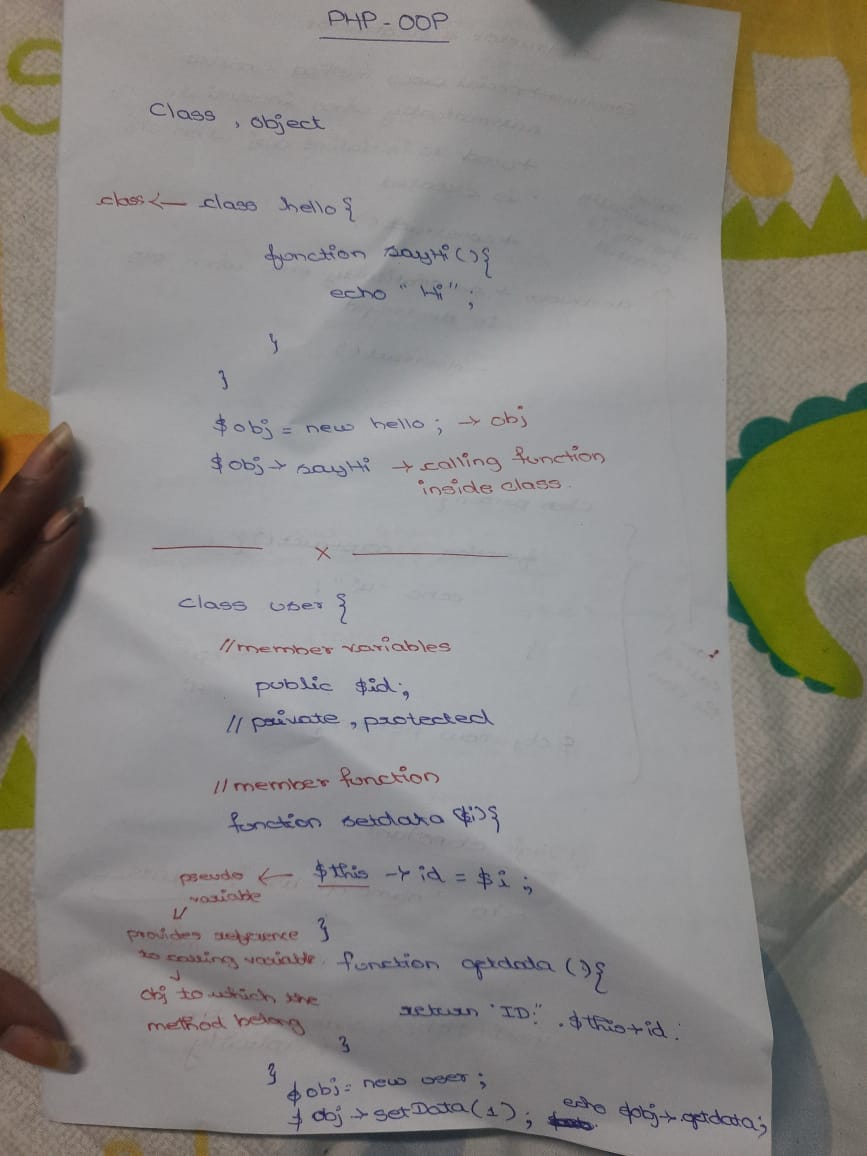 PHP-OOP
Class, object
class ← class hello {
function sayHi () {
echo "Hi";
}
}
$obj = new hello; → obj
$obj → sayHi → calling function
inside class.
x
class user {
//member variables
public $id;
// private, protected
//member function
function setdata $i) {
pseudo ← $this → id = $i;
variable
provides reference }
to calling variable. function getdata () {
obj to which the
method belong return "ID:" . $this→id;
}
}
$obj = new user;
$obj → setData(1); echo $obj→getdata;